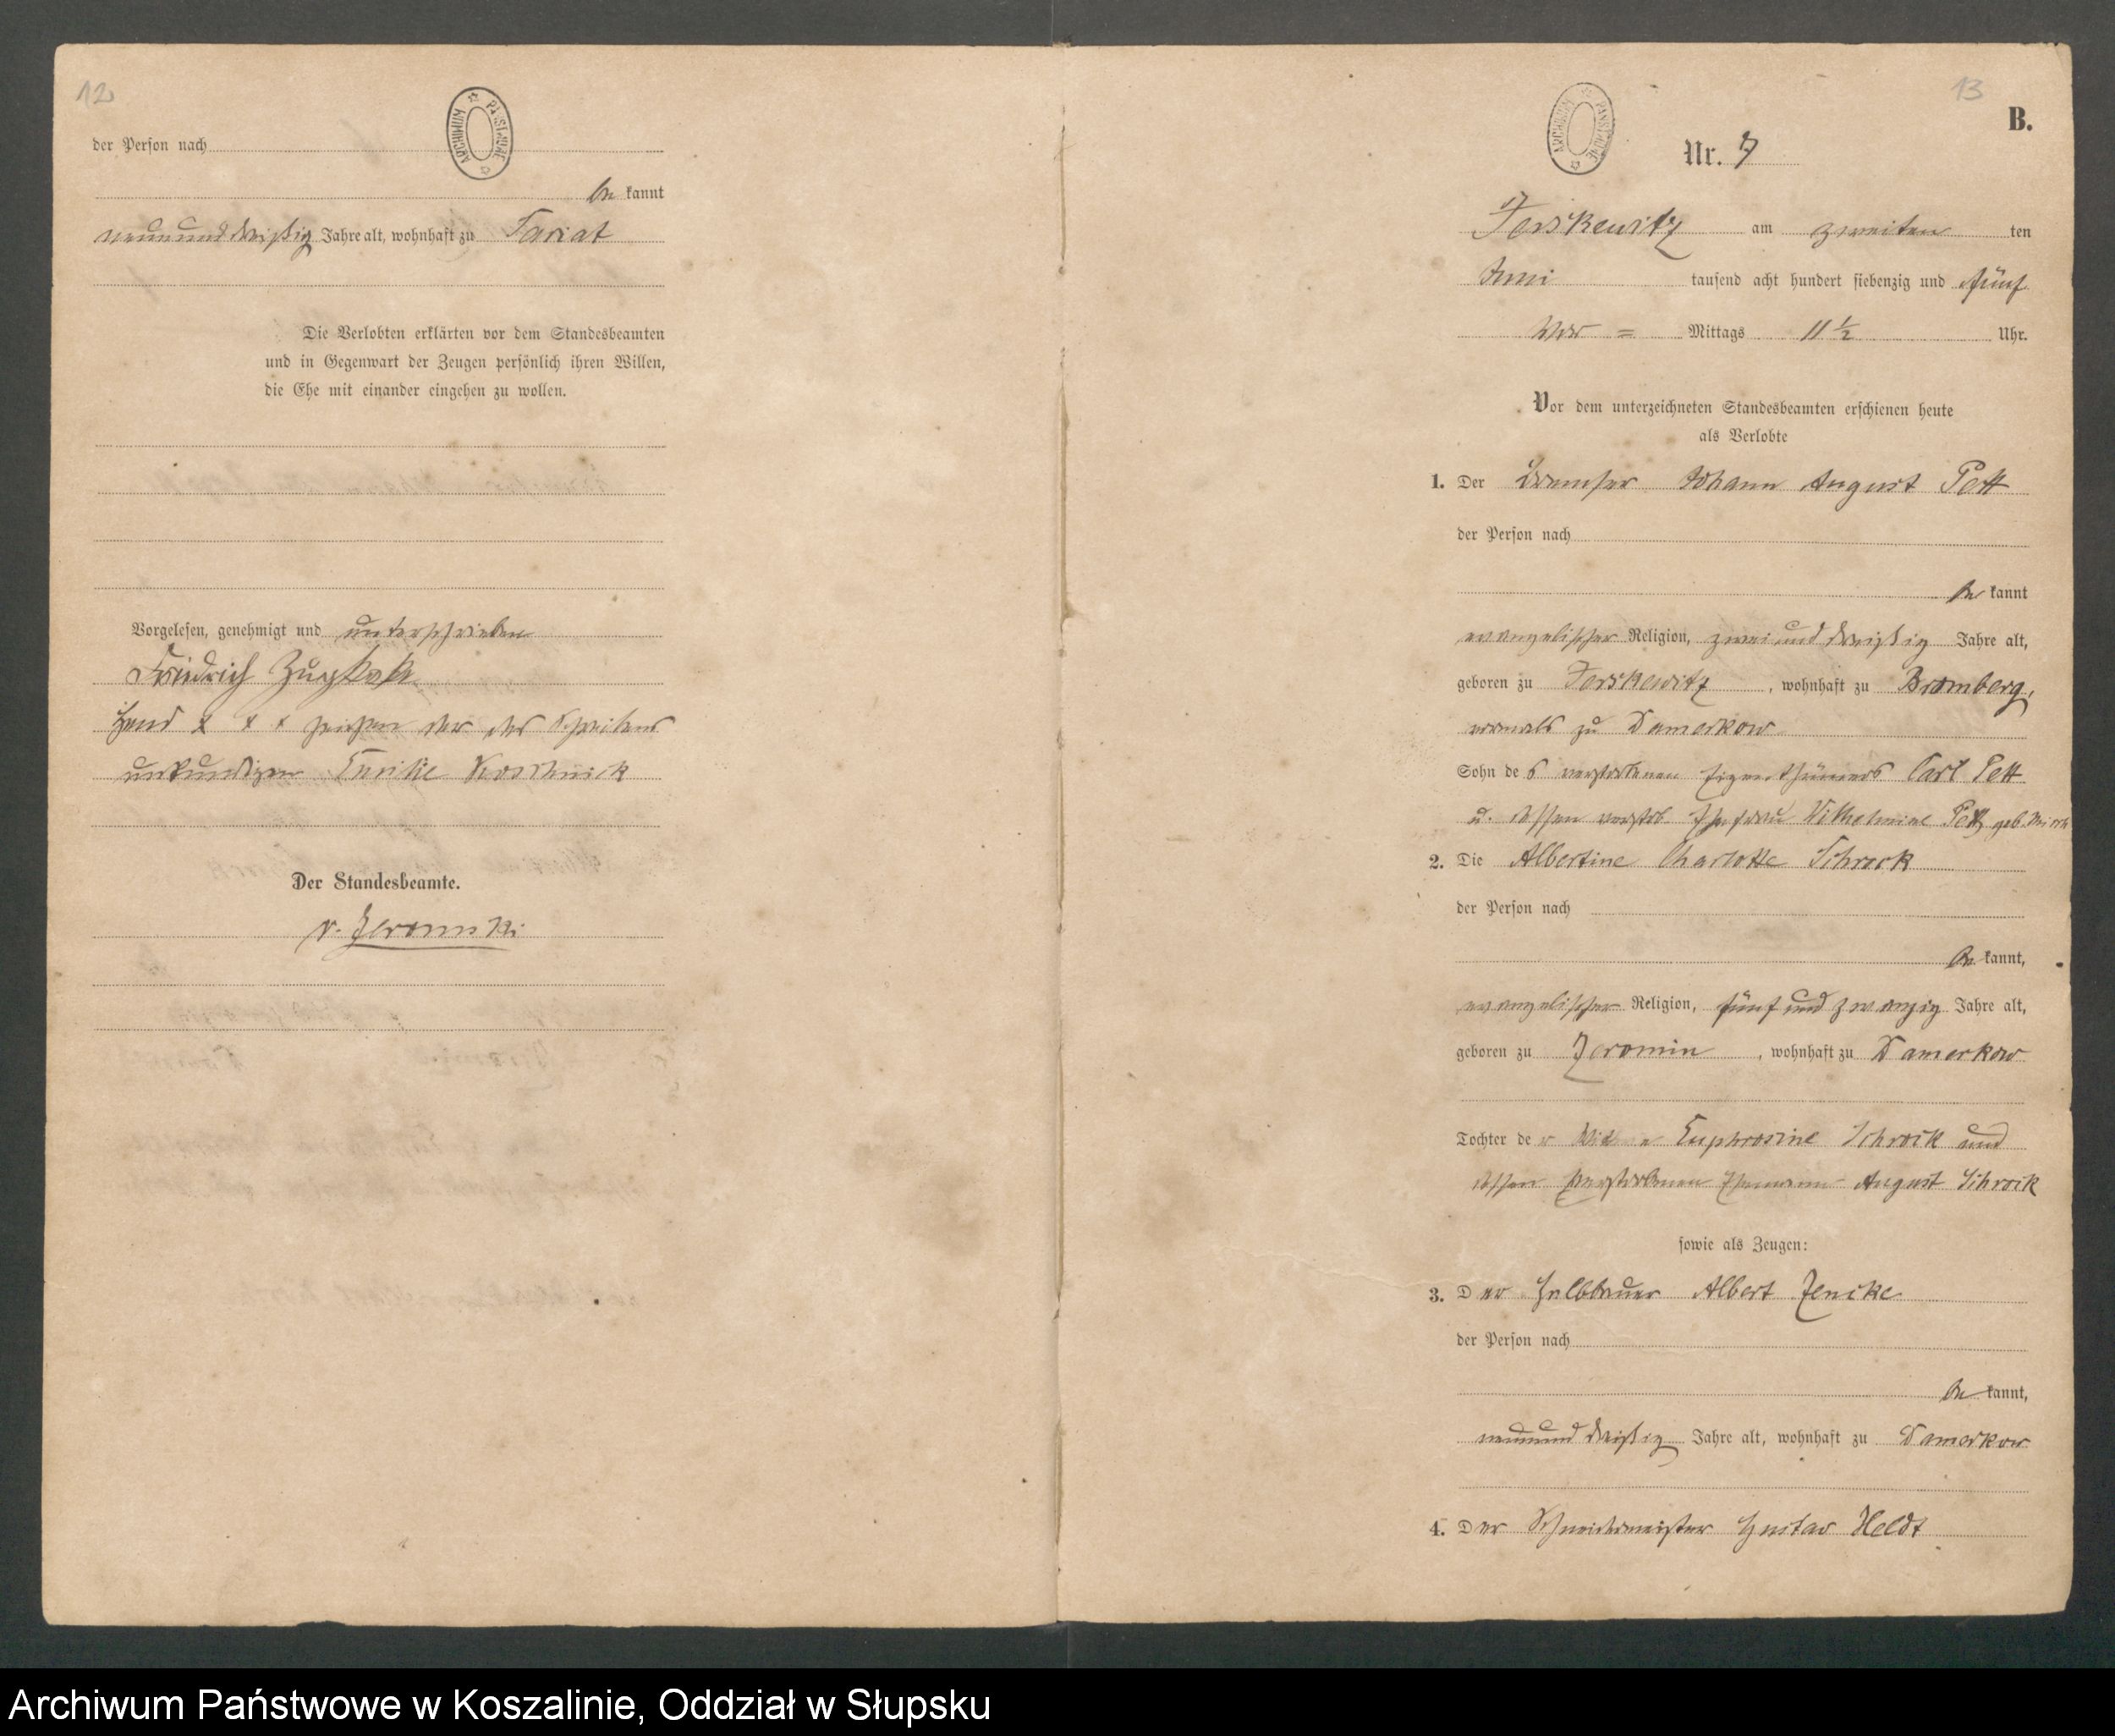 12
ARCHIWUM PAŃSTWOWE
der Person nach
be kannt
neununddreißig Jahre alt, wohnhaft zu
Die Verlobten erklärten vor dem Standesbeamten
und in Gegenwart der Zeugen persönlich ihren Willen,
die Ehe mit einander eingehen zu wollen.
Vorgelesen, genehmigt und unterschrieben
Friedrich
Hand x x x zeichen der des Schreibens
unkundigen Emilie Koschnick
Der Standesbeamte.
v.
13
B.
ARCHIWUM PAŃSTWOWE
Nr. 7
Jerskewitz am zweiten ten
Juni tausend acht hundert siebenzig und fünf
Vor = Mittags 11 ½ Uhr.
Vor dem unterzeichneten Standesbeamten erschienen heute
als Verlobte
1. Der Johann August Pett
der Person nach
be kannt
evangelischer Religion, zwei und dreißig Jahre alt,
geboren zu Jerskewitz, wohnhaft zu Bromberg,
vormals zu Damerkow
Sohn de s verstorbenen Eigenthümers Carl Pett
u. dessen verstorb. Ehefrau Wilhelmine Pett geb.
2. Die Albertine Charlotte Schrock
der Person nach
be kannt,
evangelischer Religion, fünf und zwanzig Jahre alt,
geboren zu Jeromin, wohnhaft zu Damerkow
Tochter de r Euphrosine Schrock und
dessen verstorbenen Ehemann August Schrock
sowie als Zeugen:
3. D er Halbbauer Albert Jencke
der Person nach
be kannt,
neunund dreißig Jahre alt, wohnhaft zu Damerkow
4. D er Schneidermeister Gustav Heldt
Archiwum Państwowe w Koszalinie, Oddział w Słupsku